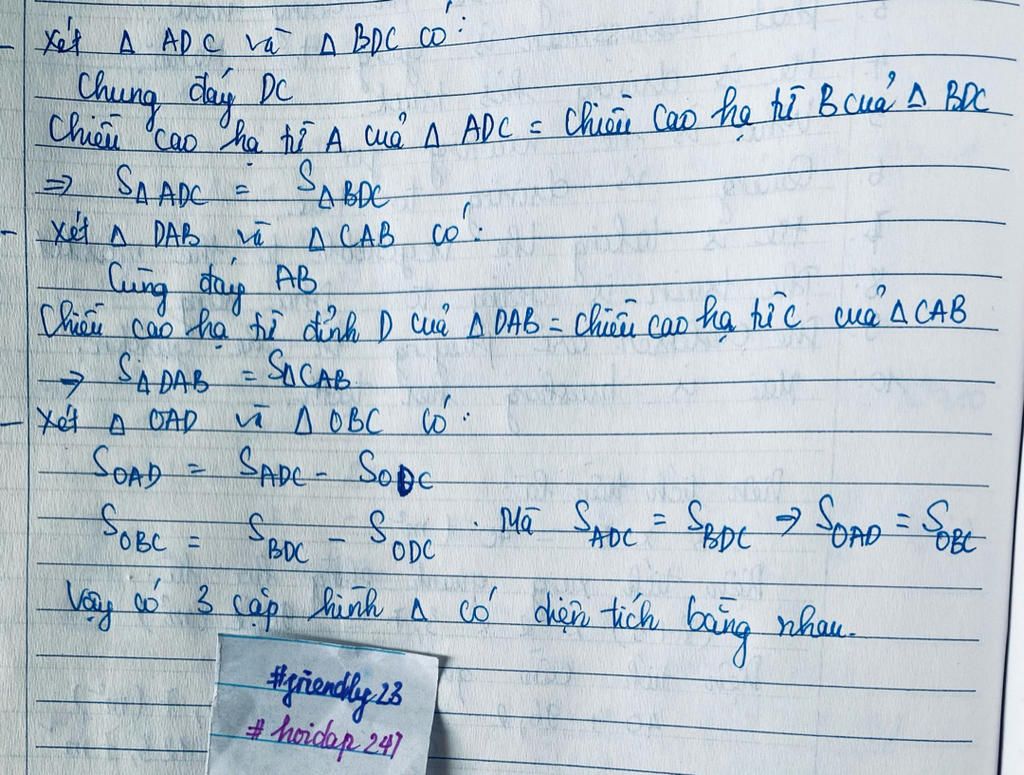 - Xét Δ ADC và Δ BDC có:
Chung đáy DC
Chiều cao hạ từ A của Δ ADC = Chiều cao hạ từ B của Δ BDC
⇒ SΔADC = SΔBDC
- Xét Δ DAB và Δ CAB có:
Cùng đáy AB
Chiều cao hạ từ đỉnh D của Δ DAB = chiều cao hạ từ C của Δ CAB
⇒ SΔDAB = SΔCAB
- Xét Δ OAD và Δ OBC có:
SOAD = SADC - SODC
SOBC = SBDC - SODC . Mà SADC = SBDC ⇒ SOAD = SOBC
Vậy có 3 cặp hình Δ có diện tích bằng nhau.
#friendly23
#hoidap247